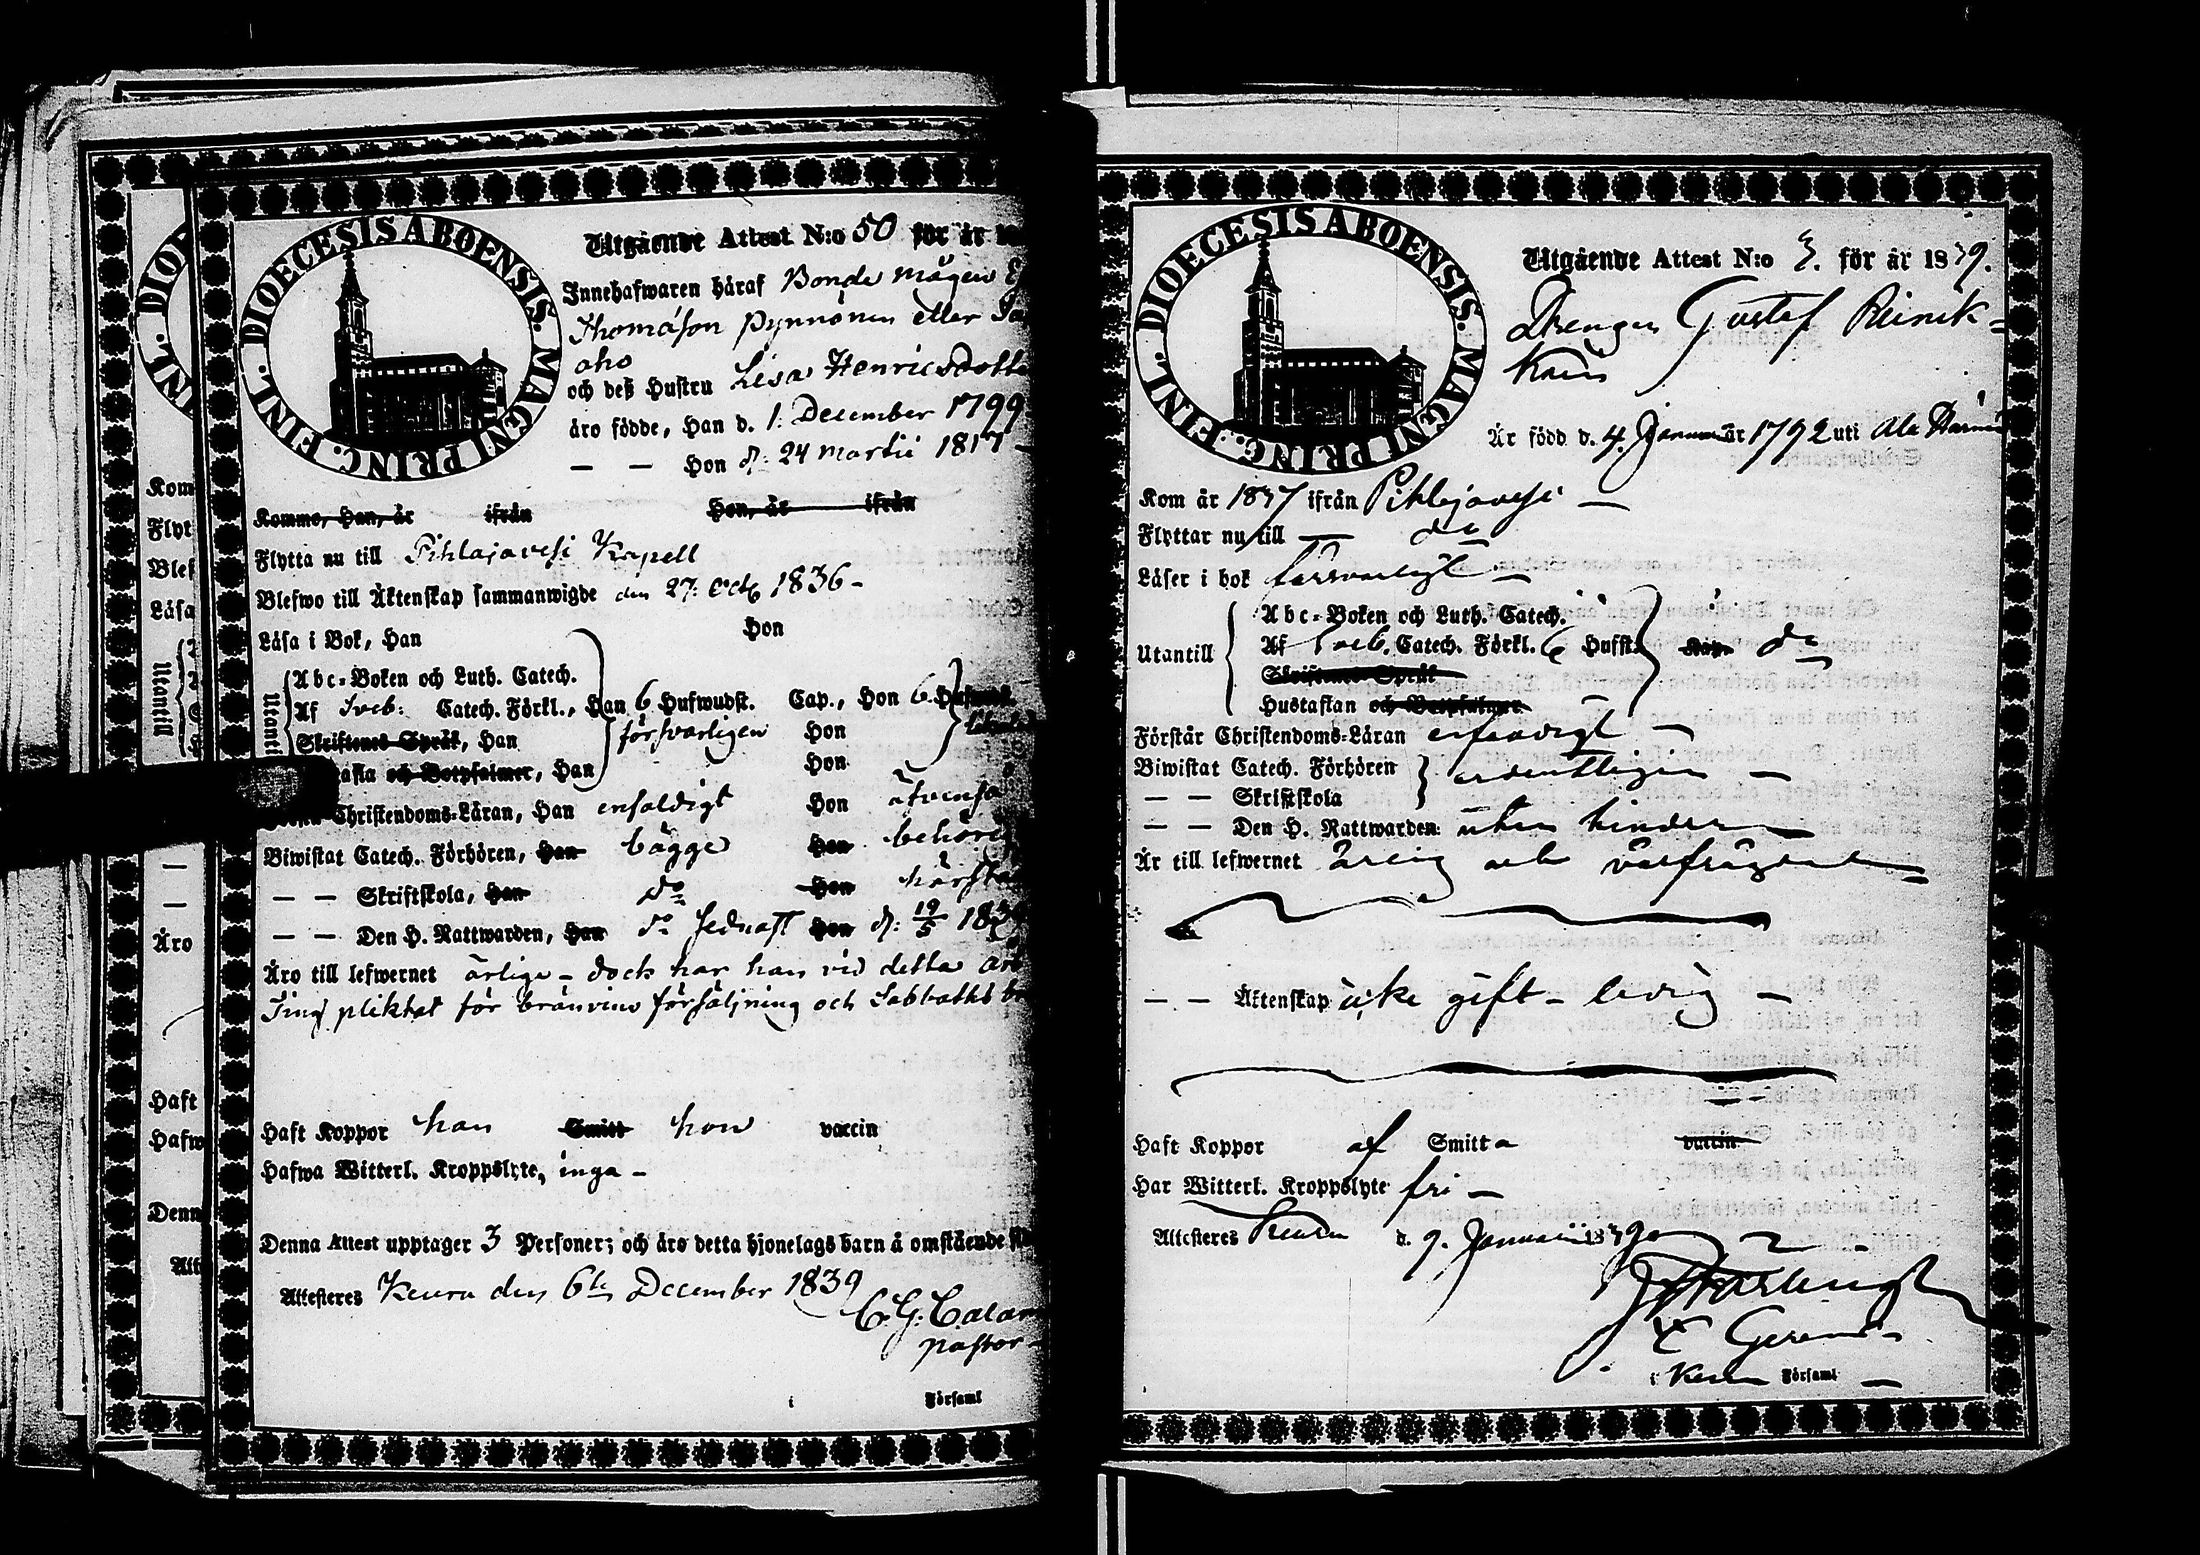 DIOECESIS ABOENSIS. MAGNI PRINC. FINL.
Utgående Attest N:o 50 för år
Innehafwaren häraf Bonde mågen
Thomasson Pynnönen eller
aho
och deß Hustru Lisa Henricsdotte
äro födde, Han d. 1. December 1799
— — Hon d: 24 Martii 1817
Komme, Han, år ifrån Hon, år ifrån
Flytta nu till Pihlajavesi Kapell
Blefwo till Äktenskap sammanwigde den 27: Octb 1836 –
Läsa i Bok, Han Hon
Utantill
Abc-Boken och Luth. Catech.
Af Sveb: Catech. Förkl., Han 6 Hufwudst. Cap., Hon 6 Hufwud
Skriftenes Språk, Han försvarligen Hon
tafla och Botpsalmer, Han Hon
Christendoms-Läran, Han enfaldigt Hon äfvenså
Biwistat Catech. Förhören, Han bägge Hon behöri
— — Skriftskola, Han do Hon härsta
— — Den H. Nattwarden, Han do sednast Hon d: 19/5 18
Äro till lefwernet ärlige – dock har han vid detta
Ting pliktat för bränvins försäljning och Sabbaths
Haft Koppor han Smitt hon vaccin
Hafwa Witterl. Kroppslyte, inga –
Denna Attest upptager 3 Personer; och äro detta hjonelags barn å omstående
Attesteres Keuru den 6te December 1839
C. G. Calam
pastor
i Församl
DIOECESIS ABOENSIS. MAGNI PRINC. FINL.
Utgående Attest N:o 3. för år 1839.
Drengen Gustef Reinik=
kain
Är född d. 4. Januarii år 1792 uti
Kom år 1837 ifrån Pihlajavesi —
Flyttar nu till — do
Läser i bok försvarligt —
Abc-Boken och Luth. Catech.
Utantill Af Sveb. Catech. Förkl. 6 Hufst. Kap. do
Skriftenes Språk
Hustaflan och Botpsalmer
Förstår Christendoms-Läran enfaldigt —
Biwistat Catech. Förhören ordentligen —
— — Skriftskola
— — Den H. Nattwarden: utan hinder
Är till lefwernet ärlig och välfrägdad
— — Äktenskap icke gift – ledig —
Haft Koppor af Smitta vaccin
Har Witterl. Kroppslyte fri —
Attesteres Keuru d. 9. Januarii 1839
i Keuru Församl